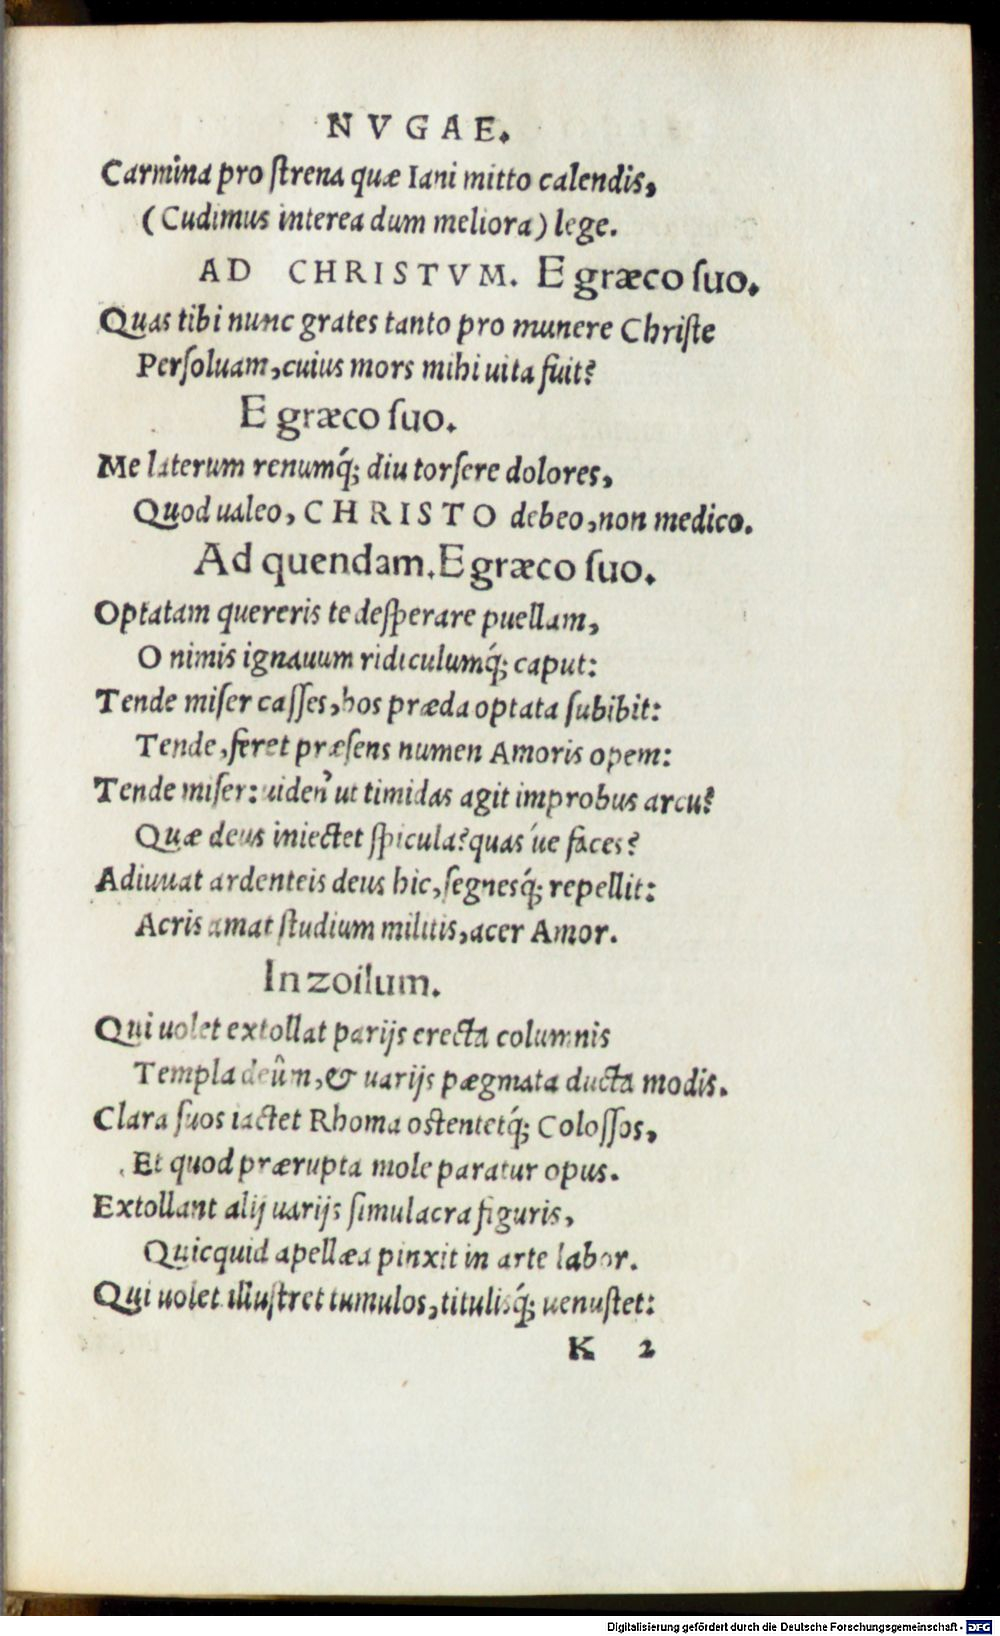 NVGAE.
Carmina pro ſtrena quæ Iani mitto calendis,
(Cudimus interea dum meliora) lege.
AD CHRISTVM. E græco ſuo.
Quas tibi nunc grates tanto pro munere Chriſte
Perſoluam, cuius mors mihi uita fuit?
E græco ſuo.
Me laterum renumq́; diu torſere dolores,
Quod ualeo, CHRISTO debeo, non medico.
Ad quendam. E græco ſuo.
Optatam quereris te deſperare puellam,
O nimis ignauum ridiculumq́; caput:
Tende miſer caſſes, hos præda optata ſubibit:
Tende, feret præſens numen Amoris opem:
Tende miſer: uiden' ut timidas agit improbus arcu?
Quæ deus iniectet ſpicula? quas´ue faces?
Adiuuat ardenteis deus hic, ſegnesq́; repellit:
Acris amat ſtudium militis, acer Amor.
In zoilum.
Qui uolet extollat parijs erecta columnis
Templa deûm, & uarijs pægmata ducta modis.
Clara ſuos iactet Rhoma oſtentetq́; Coloſſos,
Et quod prærupta mole paratur opus.
Extollant alij uarijs ſimulacra figuris,
Quicquid apellæa pinxit in arte labor.
Qui uolet illuſtret tumulos, titulisq́; uenuſtet:
K 2
Digitalisierung gefördert durch die Deutsche Forschungsgemeinschaft - DFG